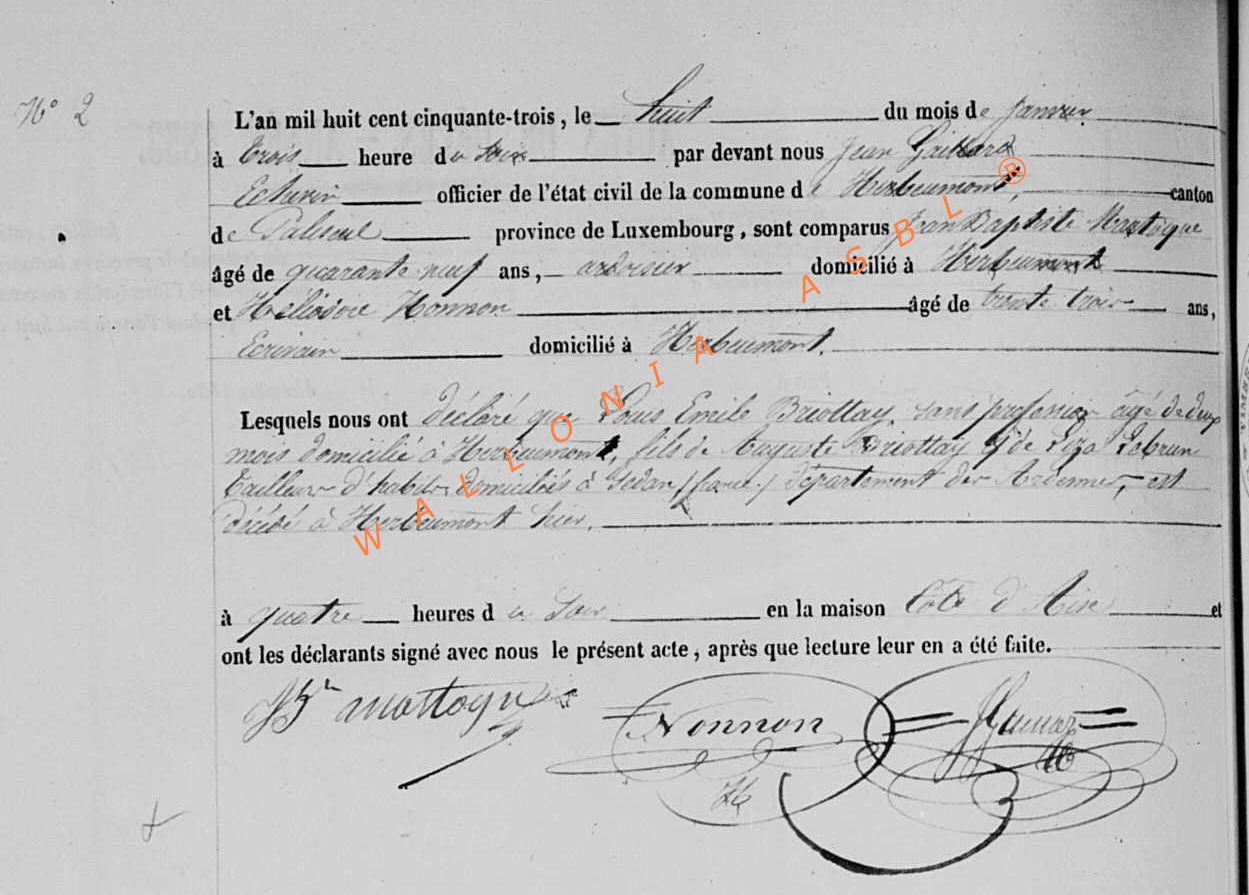 N° 2
L'an mil huit cent cinquante-trois, le huit du mois de janvier
à trois heure du soir par devant nous Jean
Echevin officier de l'état civil de la commune de Herbeumont, canton
de Paliseul province de Luxembourg, sont comparus Jean Baptiste Martogue
âgé de quarante neuf ans, ardoisier domicilié à Herbeumont
et Héliodore Nonnon âgé de trente trois ans,
Ecrivain domicilié à Herbeumont.
Lesquels nous ont déclaré que Louis Emile Briottay, sans profession âgé de deux
mois domicilié à Herbeumont, fils de Auguste Briottay & de Liza Lebrun
tailleur d'habits, domiciliés à Sedan (france) département des Ardennes, est
décédé à Herbeumont hier,
à quatre heures du soir en la maison et
ont les déclarants signé avec nous le présent acte, après que lecture leur en a été faite.
Nonnon
WALLONIA ASBL ®